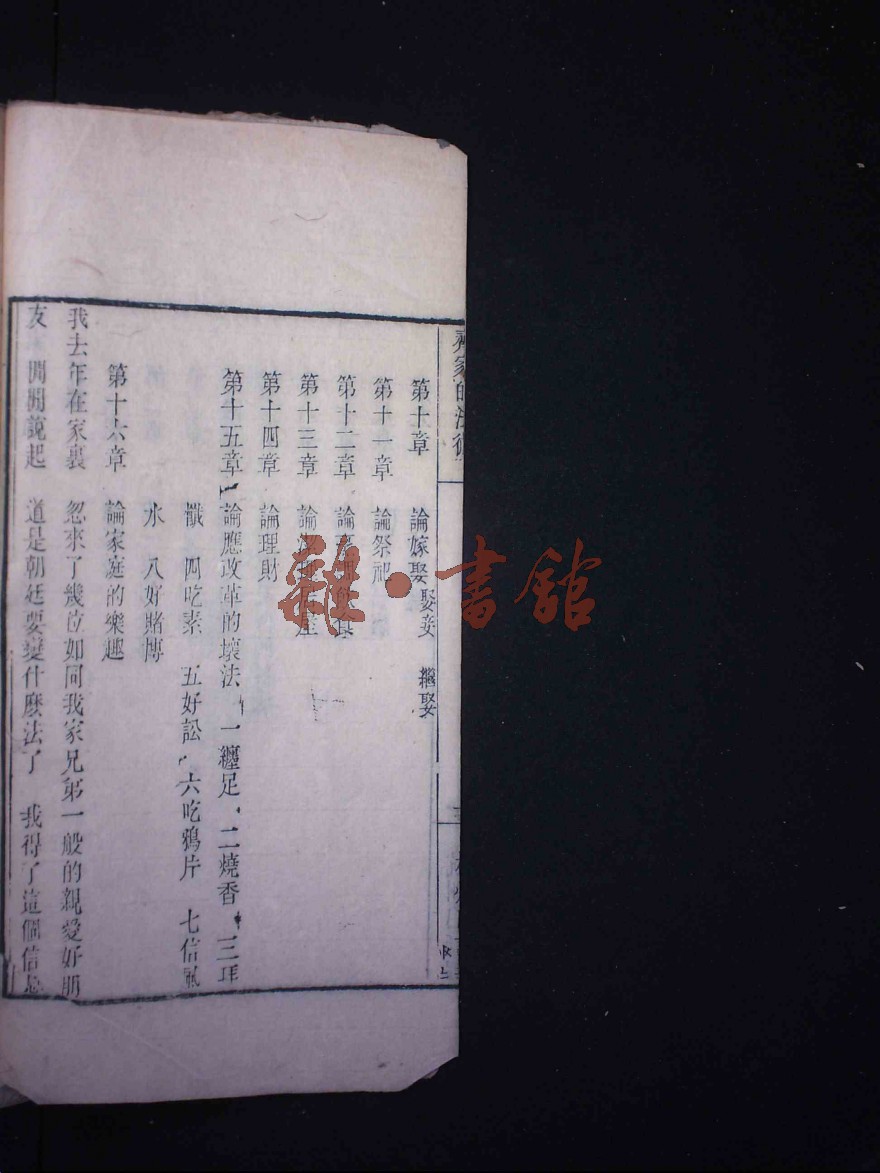 齊家的法
第十章 論嫁娶 娶妾 繼娶
第十一章 論祭祀
第十二章 論
第十三章 論 產
第十四章 論理財
第十五章 論應改革的壞法 一纏足 二燒香 三拜
懺 四吃素 五好訟 六吃鴉片 七信風
水 八好賭博
第十六章 論家庭的樂趣
我去年在家裏 忽來了幾位如同我家兄弟一般的親愛好朋
友 閒閒說起 道是朝廷要變什麼法了 我得了這個信息
雜·書館